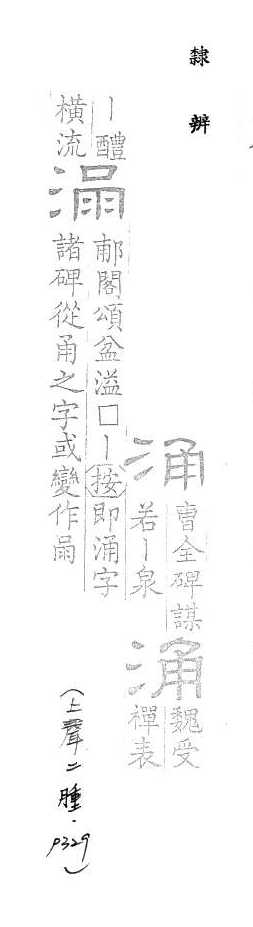 隸辨
涌
曹全碑謀
若丨泉
涌
魏受
禪表
丨醴
橫流
郙閣頌盆溢□丨按即涌字
諸碑從甬之字或變作
(上聲二腫．P329)